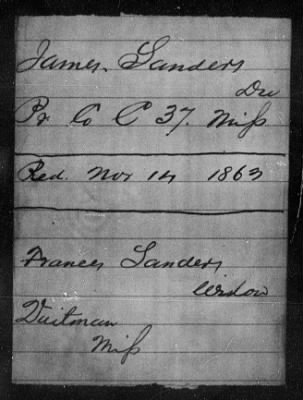 James Sanders
Dec
Pr Co C 37. Miss
Recd. Nov 14 1863
Frances Sanders
Widow
Quitman
Miss